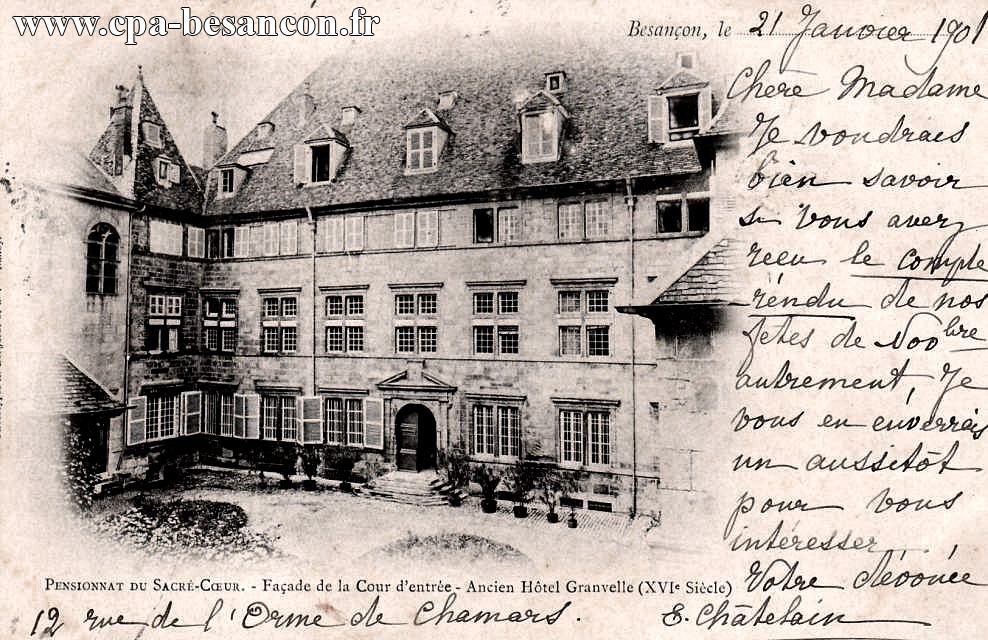 www.cpa-besancon.fr
Besançon, le 21 Janvier 1901
Chère Madame
Je voudrais
bien savoir
si vous avez
reçu le compte
rendu de nos
fêtes de Novbre
autrement, Je
vous en enverrais
un aussitôt
pour vous
intéresser
Votre dévouée
E. Châtelain
PENSIONNAT DU SACRÉ-CŒUR. - Façade de la Cour d'entrée - Ancien Hôtel Granvelle (XVIe Siècle)
12 rue de l'Orme de Chamars.